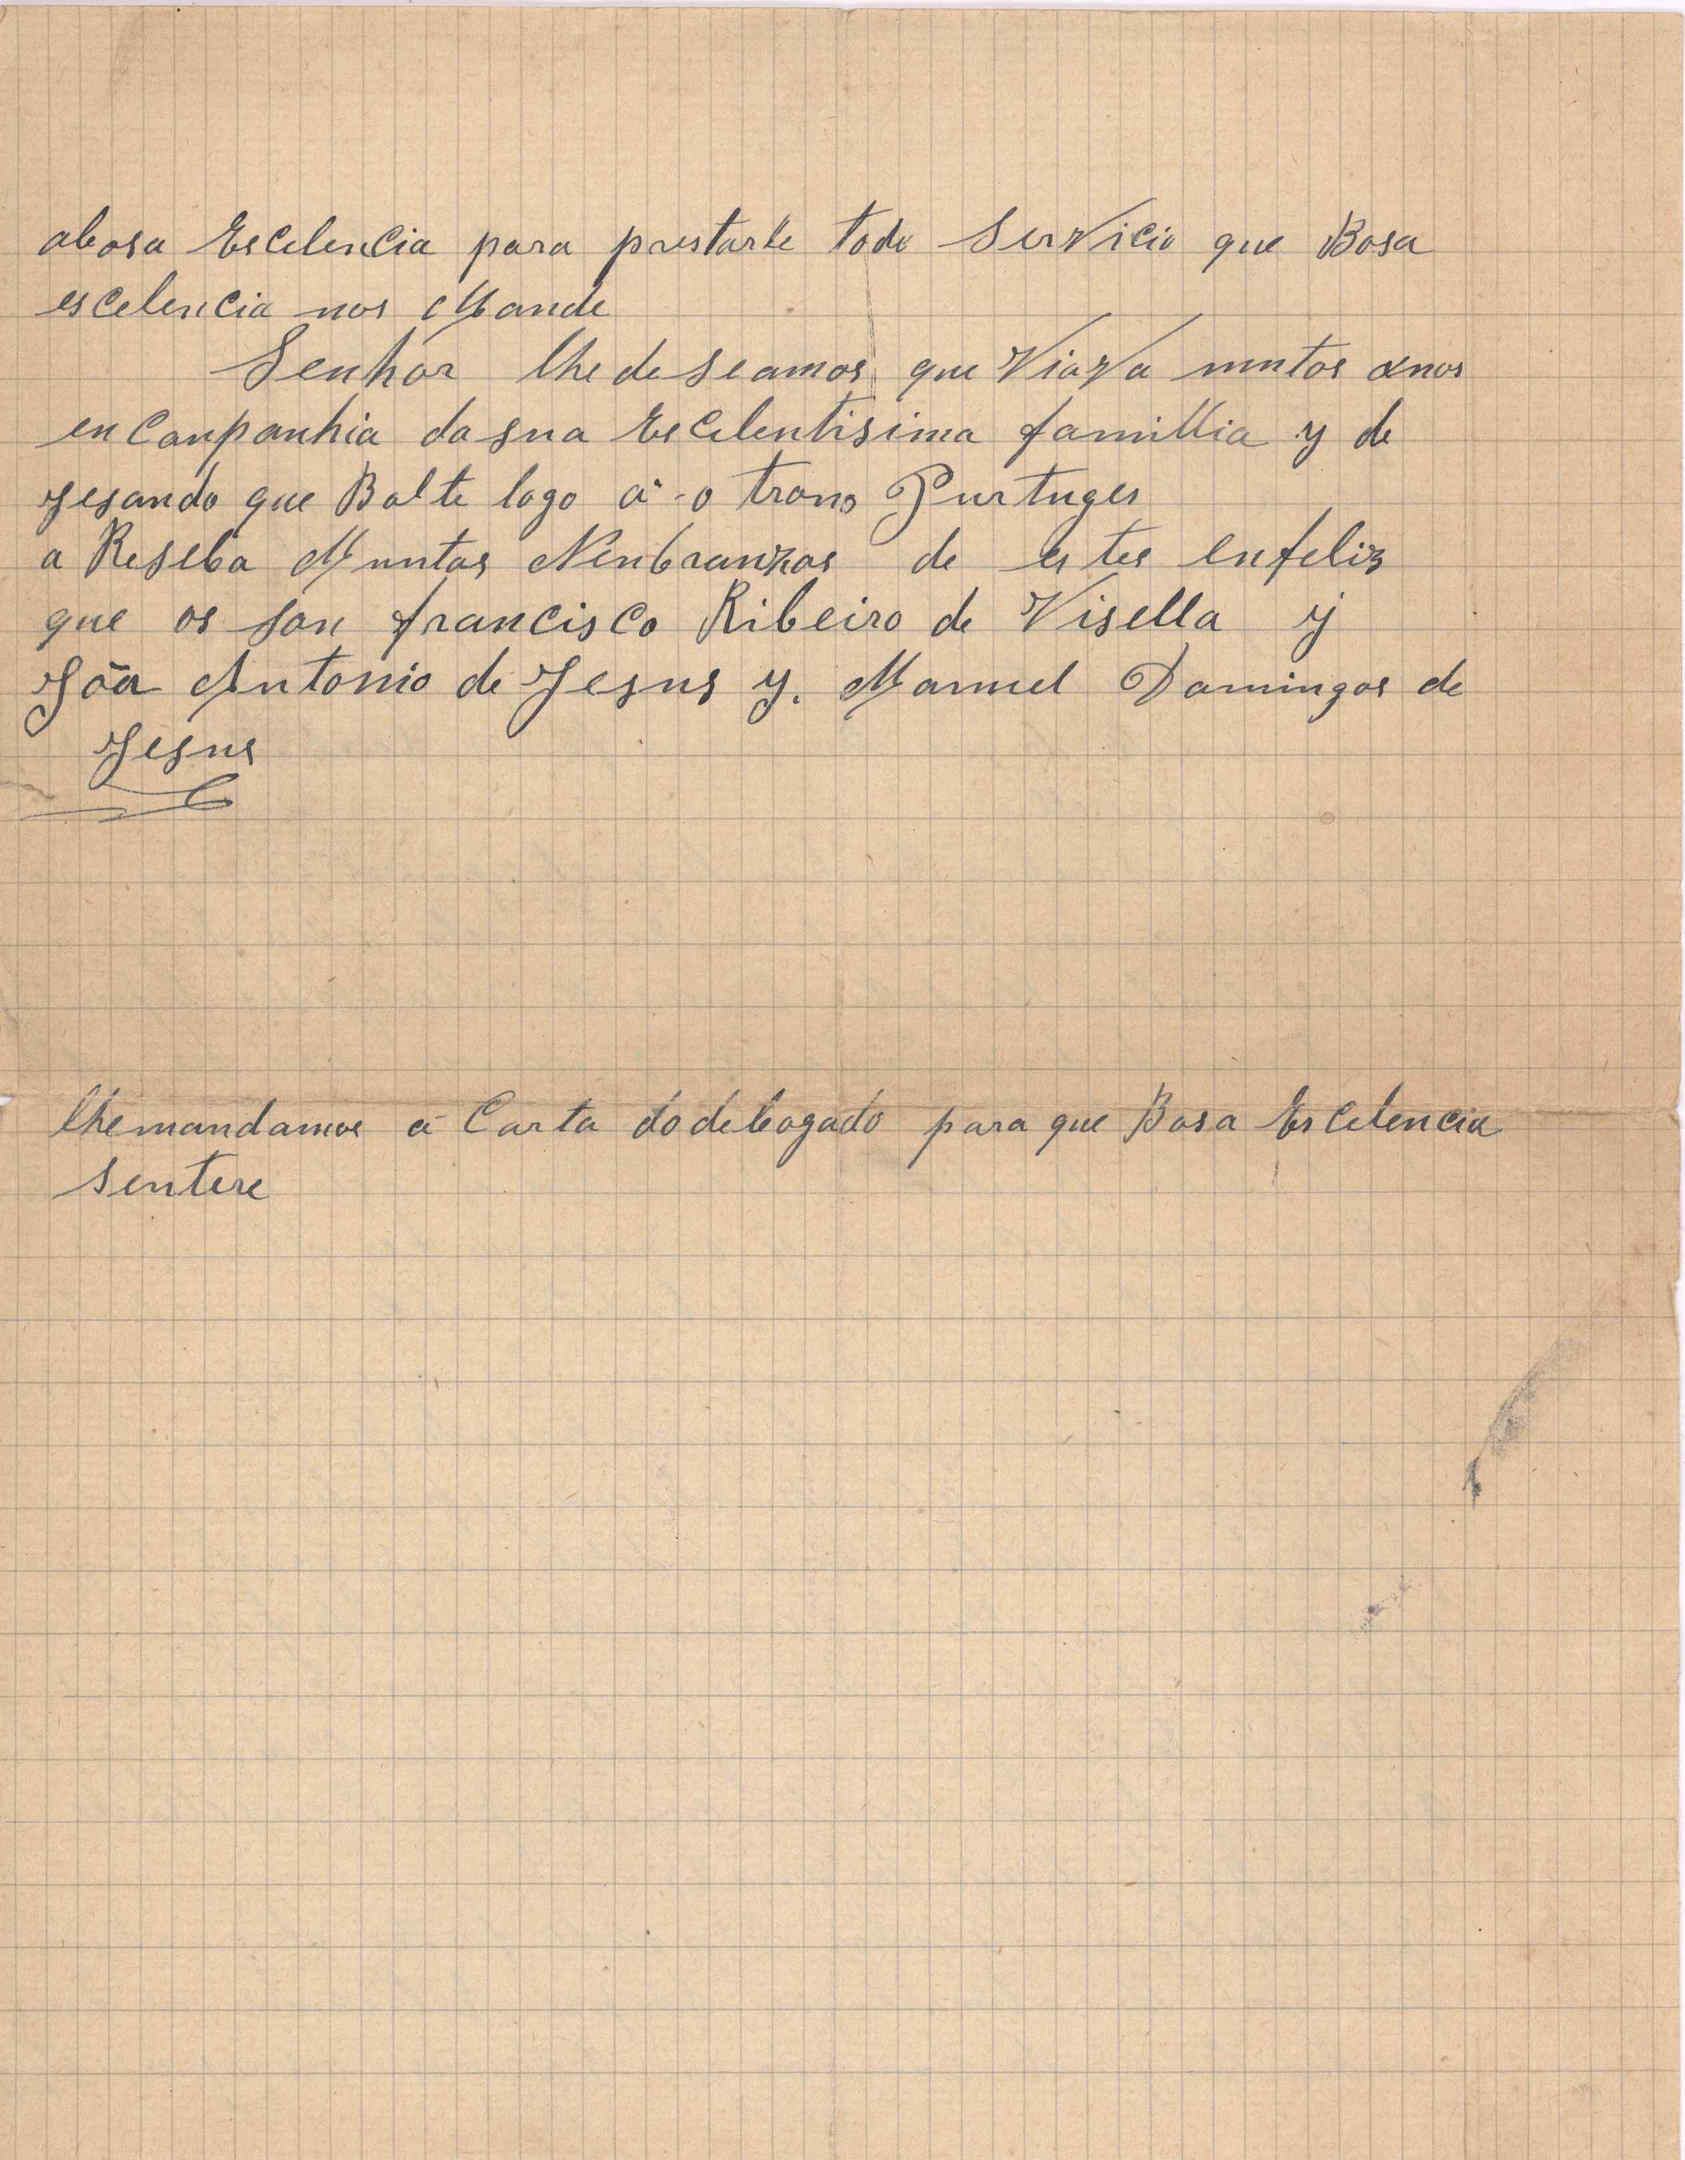 abosa Escelencia para prestarle todo Servicio que Bosa
escelencia nos Mande
Senhor lhe deseamos que ViaVa muntos anos
en Conpanhia dasua Escelentisima famillia y de
Jesando que Bolte logo a o trono Purtuges
a Reseba Muntas Nenbranzas de estes enfeliz
que os son francisco Ribeiro de Visella y
Jõa Antonio de Jesus y. Manuel Domingos de
Jesus
lhemandamos a Carta dodebogado para que Bosa Escelencia
sentere